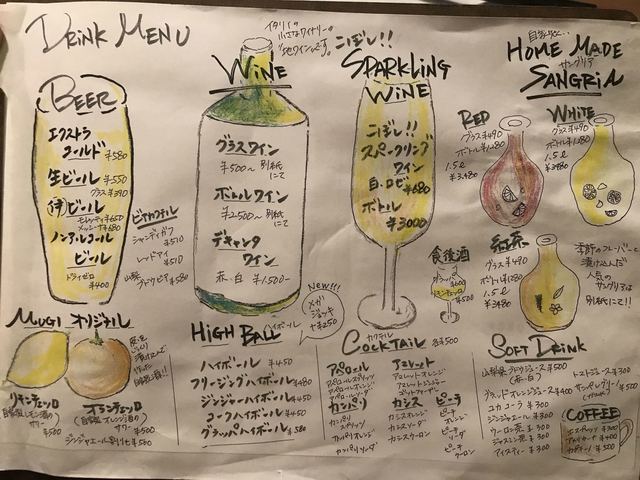 DRINK MENU
BEER
エクストラ
コールド ¥580
生ビール ¥550
グラス ¥390
(伊)ビール
モレッティ ¥650
メッシーナ ¥680
ノンアルコール
ビール
ドライゼロ
¥400
ビアカクテル
シャンディガフ
¥510
レッドアイ
¥510
¥580
イタリアの
小さなワイナリー。
"地ワイン"です。
WiNE
グラスワイン
¥500〜 別紙にて
ボトルワイン
¥2,500〜 別紙にて
デキャンタ
ワイン
赤・白 ¥1,500-
こぼし!!
SPARKLING
WiNE
こぼし!!
スパークリング
ワイン
白・ロゼ
¥680
ボトル
¥3000
食後酒
グラッパ ¥600
リモンチェッロ
¥500
HOME MADE
サングリア
SANGRIA
RED
グラス ¥490
ボトル ¥1,280
1.5ℓ
¥3,480
WHITE
グラス ¥490
ボトル ¥1,280
1.5ℓ
¥3,480
紅茶
グラス ¥490
ボトル ¥1,280
1.5ℓ
¥3,480
季節のフレーバーで
漬け込んだ
人気の
サングリアは
別紙にて!!
MUGI オリジナル
リモンチェッロ
自家製レモン酒の
サワー
¥500
オランチェッロ
自家製オレンジ酒の
サワー
¥500
ジンジャエール割りも ¥580
HIGH BALL
ハイボール
New!!
メガ
ジョッキ
+¥250
ハイボール ¥450
フリージングハイボール ¥480
ジンジャーハイボール ¥450
コークハイボール ¥450
グラッパハイボール ¥580
COCKTAIL
カクテル
各¥500
アペロール
アペロールスプリッツ
アペロールオレンジ
アペロールソーダ
カンパリ
カンパリ
スプリッツ
カンパリオレンジ
カンパリソーダ
アマレット
アマレットオレンジ
アマレットジンジャー
カシス
カシスオレンジ
カシスソーダ
カシスウーロン
ピーチ
ピーチ
オレンジ
ピーチ
ソーダ
ピーチ
ウーロン
SOFT DRINK
山梨県ブドウジュース ¥500
(赤・白)
ブラッドオレンジジュース ¥400
コカコーラ ¥300
ジンジャエール ¥300
ウーロン茶 ¥300
ジャスミン茶 ¥300
アイスティー ¥300
トマトジュース ¥300
サンペレグリノ
¥500
COFFEE
エスプレッソ ¥300
アメリカーナ ¥400
カプチーノ ¥500